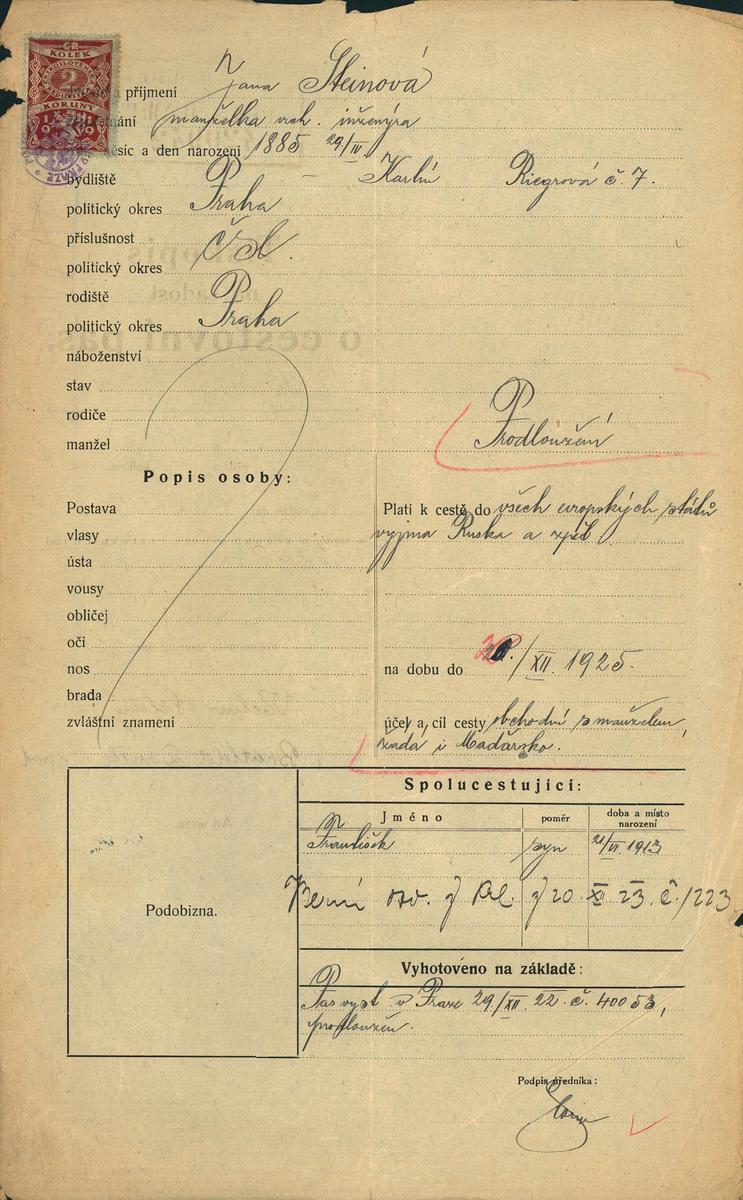 ČR
KOLEK
2
KORUNY
příjmení Jana Steinová
manželka vrch. inženýra
měsíc a den narození 1885 29/IV.
bydliště – Karlín Riegrová č. 7.
politický okres Praha
příslušnost
politický okres Čsl.
rodiště
politický okres Praha
náboženství
stav
rodiče
manžel Prodloužení
Popis osoby:
Postava
vlasy
ústa
vousy
obličej
oči
nos
brada
zvláštní znamení
Platí k cestě do všech evropských států
vyjma Ruska a zpět
na dobu do /XII. 1925.
účel a cíl cesty obchodní s manželem,
žádá i Maďarsko.
Podobizna.
Spolucestující:
Jméno poměr doba a místo narození
František syn 21/VI 1913
Berní osv. z Kl. z 20 XI 23. č. /223
Vyhotoveno na základě:
Pas vyst. v Praze 29/XII. 22. č. 40053,
prodloužen.
Podpis úředníka: